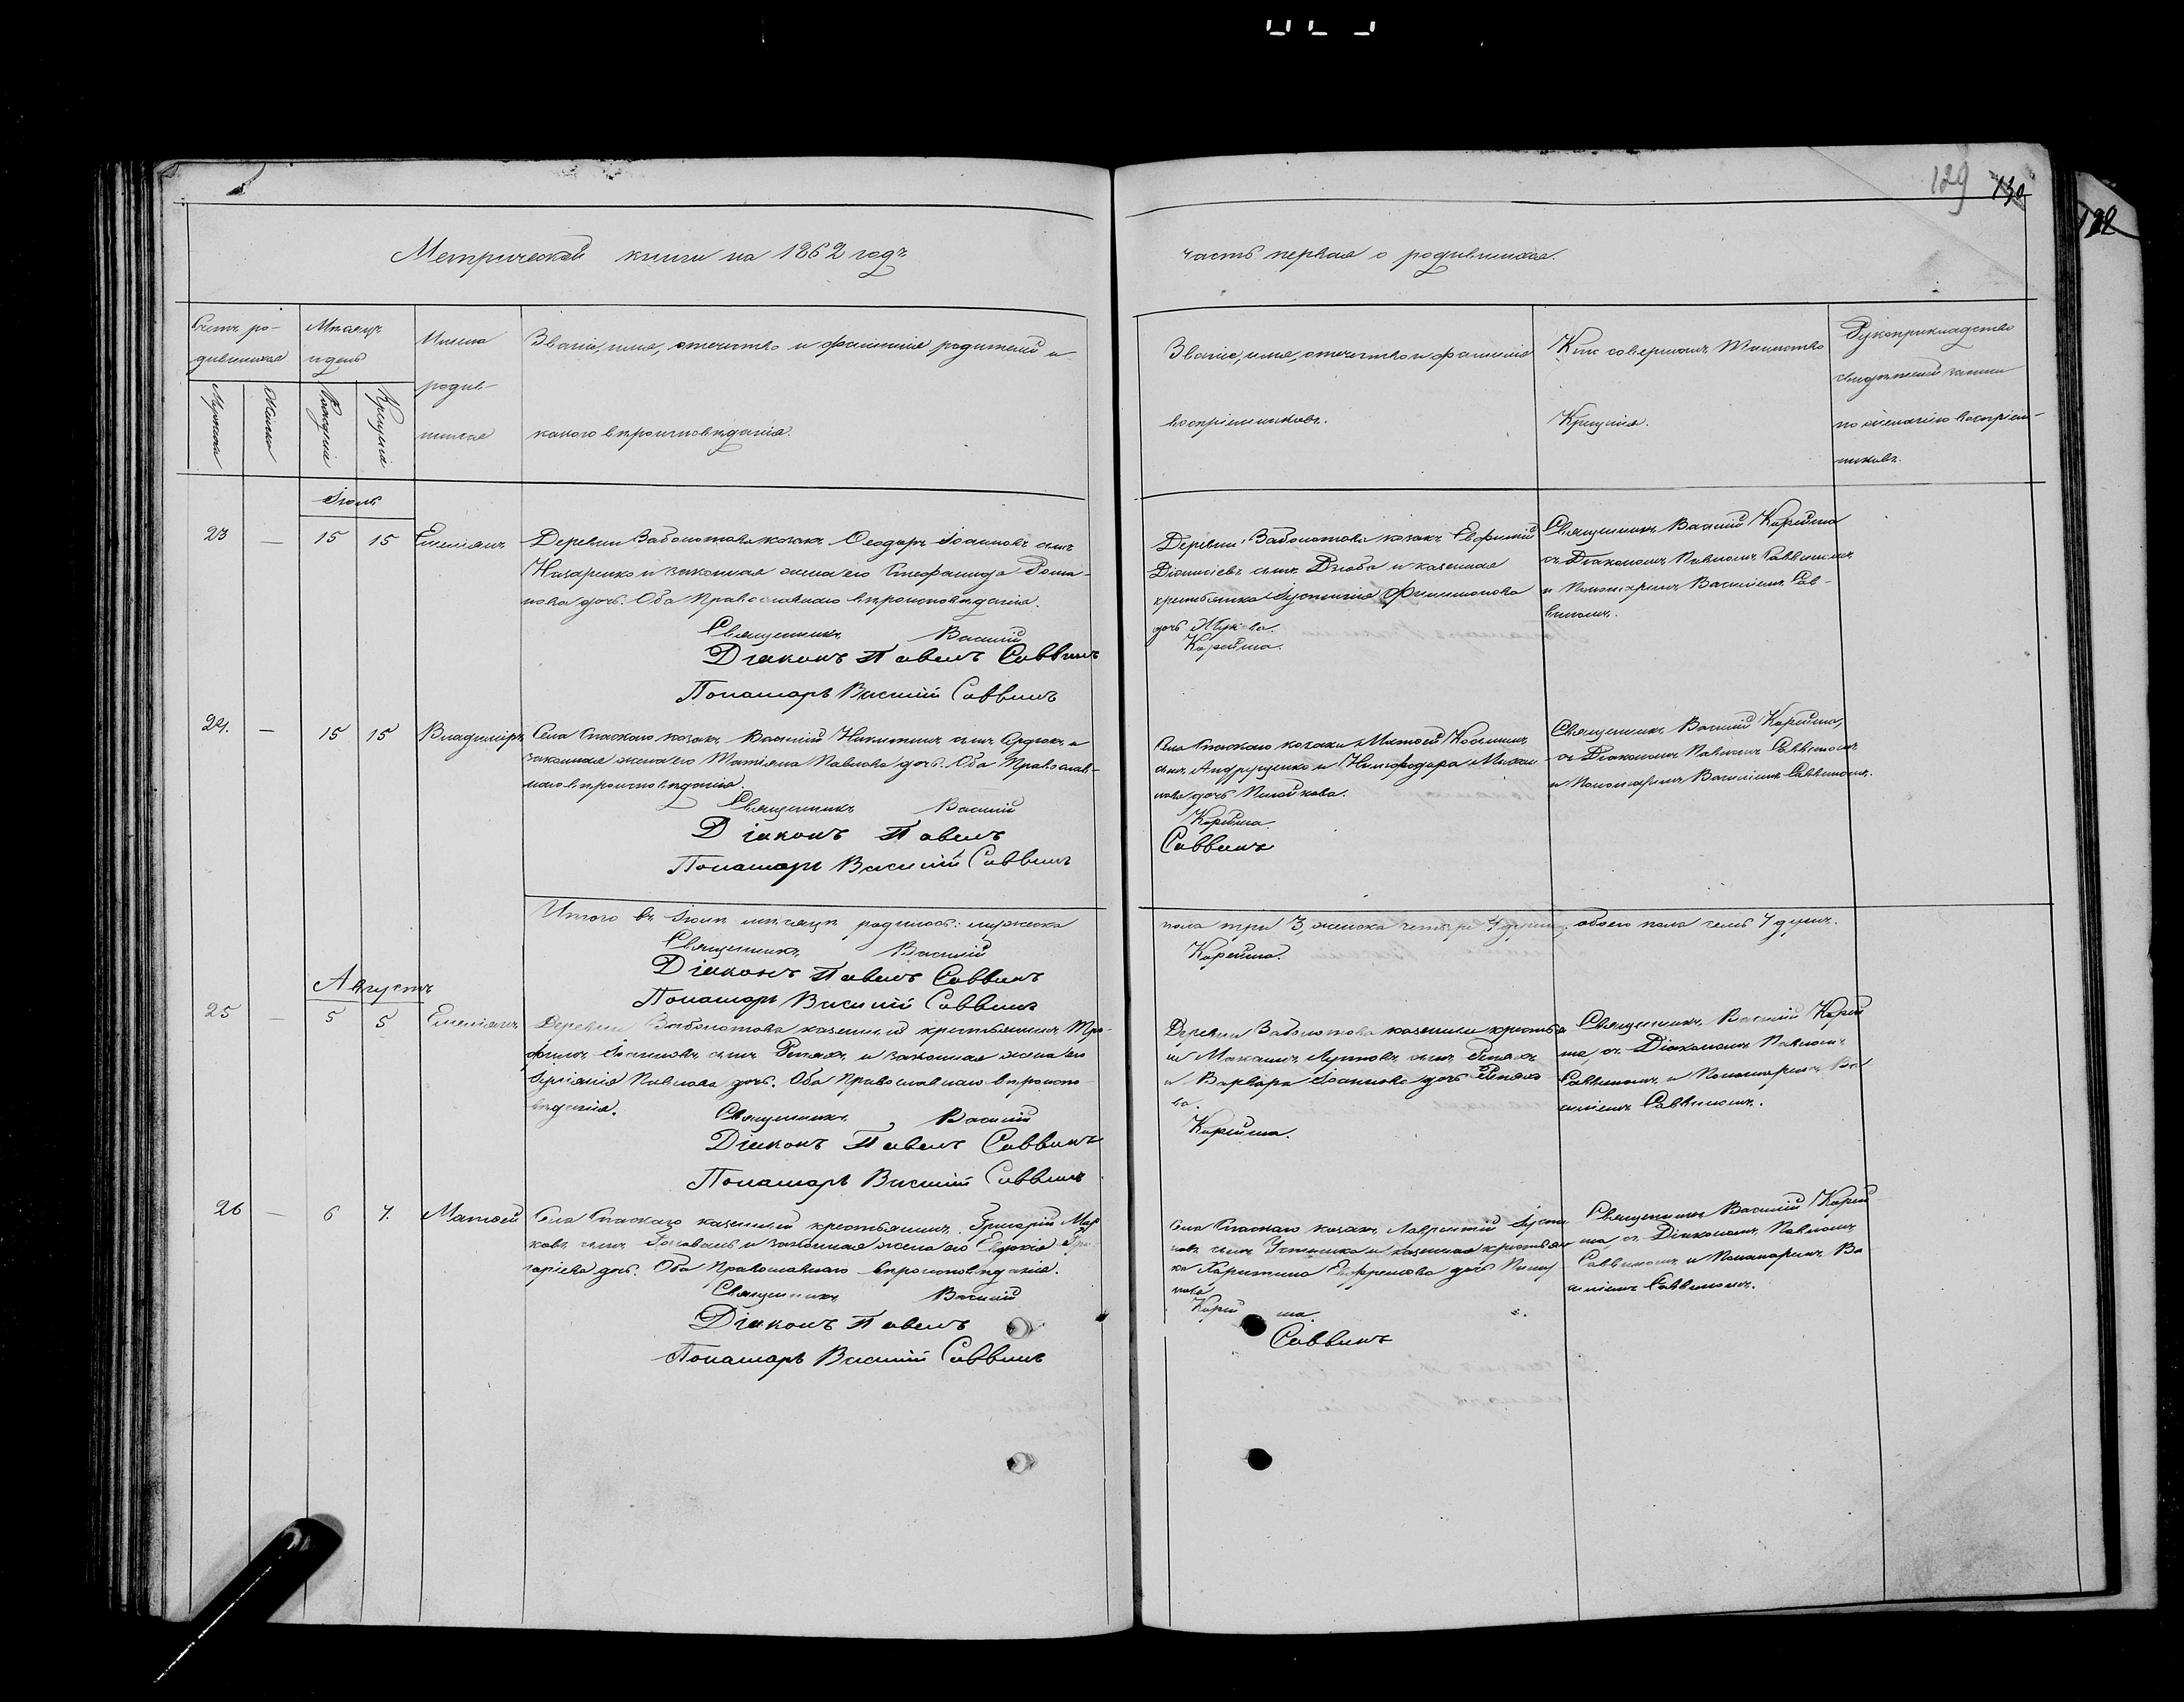 129 130
132
Метрической книги на 1862 годъ
часть первая о родившихся.
Счетъ ро-
дившихся
Мѣсяцъ
и день
Имена
родив-
шихся
Званіе, имя, отчество и фамилія родителей и
какого вѣроисповѣданія.
Мужска
Женска
Рожденія
Крещенія
Званіе, имя, отчество и фамилія
воспріемниковъ.
Кто совершалъ Таинство
Крещенія.
Рукоприкладство
свидѣтелей записи
по желанію воспріем-
никовъ.
Іюль
23 — 15 15 Емеліанъ
Деревни Заболотова козакъ Ѳеодоръ Іоанновъ сынъ
Назаренко и законная жена его Стефанида Рома-
нова дочь. Оба Православнаго вѣроисповѣданія.
Священникъ Василій
Діаконъ Павелъ Саввинъ
Понамарь Василій Саввинъ
Деревни Заболотова козакъ Евфимій
Діонисіевъ сынъ Дзюба и казенная
крестьянка Іустинія Филимонова
дочь
Корейша.
Священникъ Василій Корейша
съ Діакономъ Павломъ Саввинымъ
и Пономаремъ Василіемъ Сав-
винымъ.
24. — 15 15 Владиміръ
Села Спаскаго козакъ Василій Никитинъ сынъ Сердюкъ и
законная жена его Татіяна Павлова дочь. Оба Православ-
наго вѣроисповѣданія.
Священникъ Василій
Діаконъ Павелъ
Понамарь Василій Саввинъ
Села Спаскаго козаки Матѳей Косминъ
сынъ Андрущенко и Нимфодора
нова дочь
Корейша
Саввинъ
Священникъ Василій Корейша,
съ Діакономъ Павломъ Саввинымъ
и Пономаремъ Василіемъ Саввинымъ.
Итого въ Іюлѣ мѣсяцѣ родилось: мужска
пола три 3, женска четыре 4 души, обоего пола семь 7 душъ.
Священникъ Василій
Корейша.
Діаконъ Павелъ Саввинъ
Понамарь Василій Саввинъ
Августъ
25 — 5 5 Емеліанъ
Деревни Заболотова казенный крестьянинъ Тро-
фимъ Іоанновъ сынъ Репяхъ и законная жена его
Іуліанія Павлова дочь. Оба Православнаго вѣроиспо-
вѣданія.
Священникъ Василій
Діаконъ Павелъ Саввинъ
Понамарь Василій Саввинъ
Деревни Заболотова казенные крестья
не сынъ Репяхъ
и Варвара Іоаннова дочь Репяхо
ва.
Корейша.
Священникъ Василій Корей
ша съ Діакономъ Павломъ
Саввинымъ и Пономаремъ Ва
силіемъ Саввинымъ.
26 — 6 7. Матѳей
Села Спаскаго казенный крестьянинъ Григорій Мар
ковъ сынъ и законная жена его Евдокія Гри
горіева дочь. Оба Православнаго вѣроисповѣданія.
Священникъ Василій
Діаконъ Павелъ
Понамарь Василій Саввинъ
Села Спаскаго козакъ Лаврентій Іусти
новъ сынъ Устименко и казенная крестьян
ка Харитина Ефремова дочь
нова
Корейша.
Саввинъ
Священникъ Василій Корей
ша съ Діакономъ Павломъ
Саввинымъ и Понамаремъ Ва
силіемъ Саввинымъ.